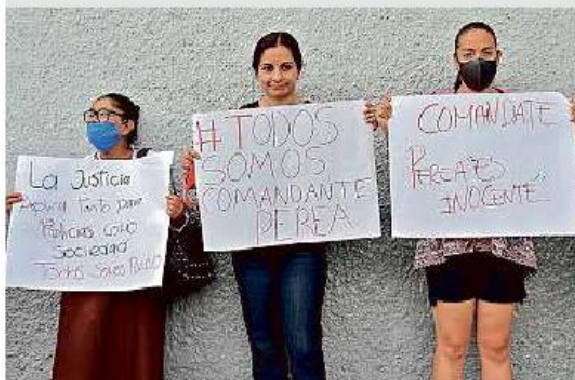 La Justicia
tanto para
como
Sociedad
Todos Somos
# TODOS
SOMOS
COMANDANTE
PEREA
COMANDATE
PEREA ES
INOCENTE.